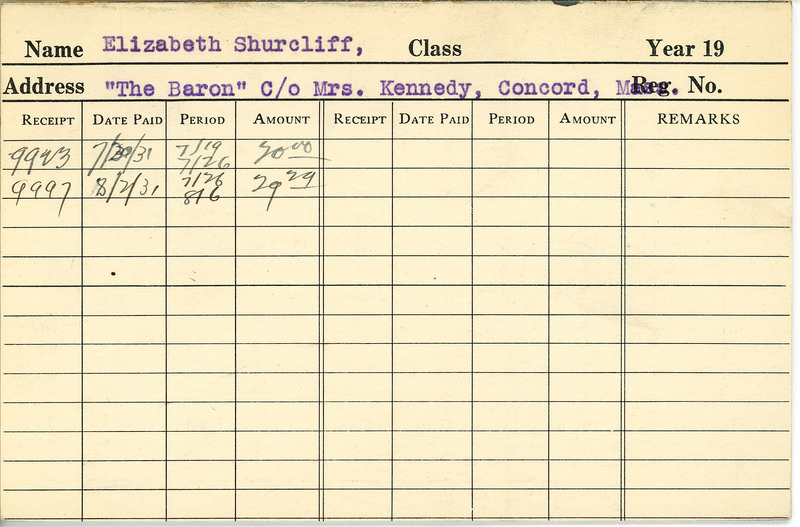 Name Elizabeth Shurcliff, Class Year 19
Address "The Baron" C/o Mrs. Kennedy, Concord, Mass. Reg. No.
RECEIPT DATE PAID PERIOD AMOUNT RECEIPT DATE PAID PERIOD AMOUNT REMARKS
9923 7/20/31 7/19 7/26 20 00
9997 8/2/31 7/26 8/6 29 29